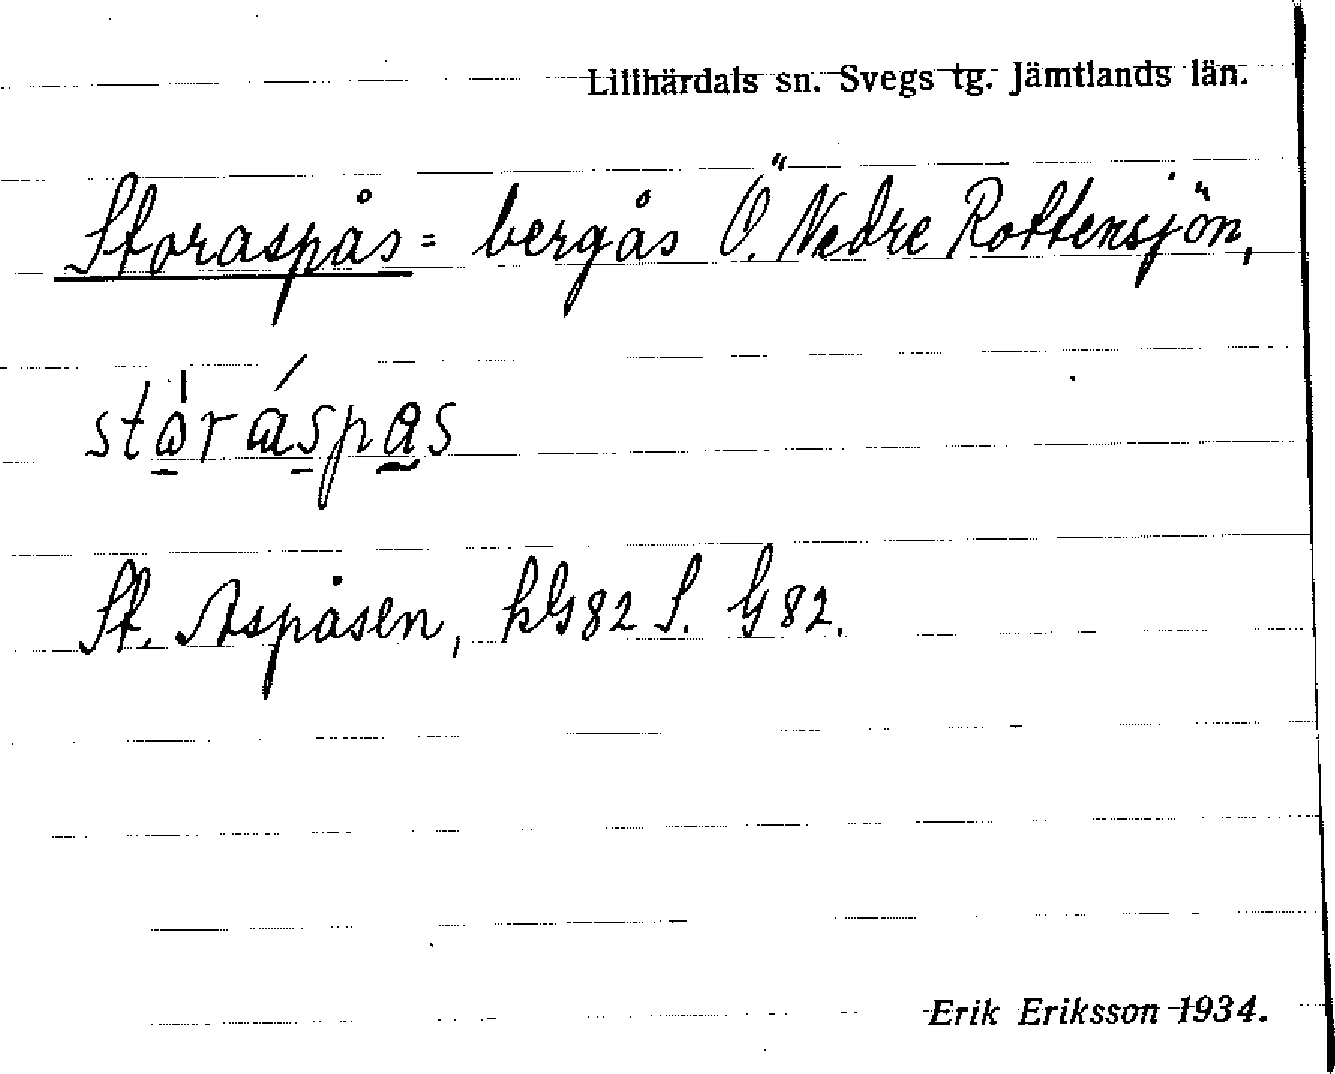 Lillhärdals sn. Svegs tg. Jämtlands län.
Storaspås = bergås Ö. Nedre Rottensjön,
St. Aspåsen, hG82 S. G82.
Erik Eriksson 1934.